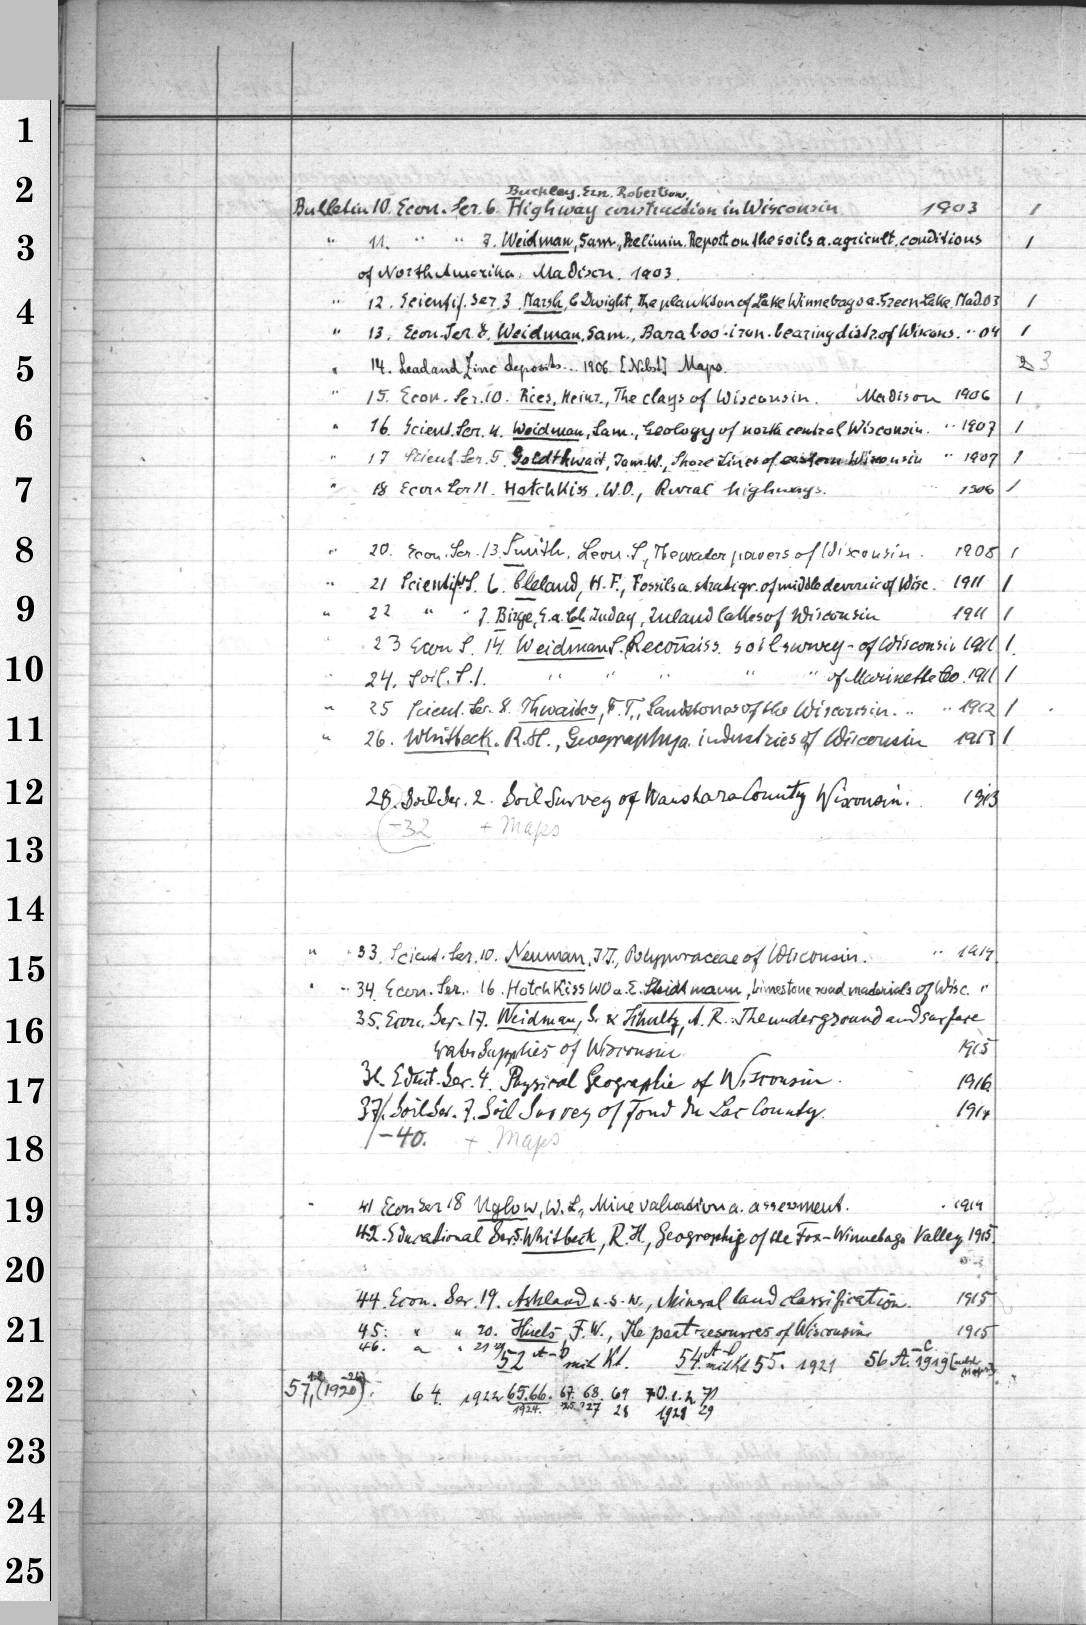 1
2
3
4
5
6
7
8
9
10
11
12
13
14
15
16
17
18
19
20
21
22
23
24
25
Buckley. Ern. Robertson,
Bulletin 10. Econ. Ser. 6. Highway construction in Wisconsin 1903 1
" 11. " " 7. Weidman, Sam., Prelimin. Report on the soils a. agricult. conditions 1
of North Amerika. Madison. 1903.
" 12. Scientif. Ser. 3. Marsh, C Dwight, The plankton of Lake Winnebago a. Green Lake. Mad. 03 1
" 13. Econ. Ser. 8. Weidman, Sam., Baraboo-iron-bearing distr. of Wiscons. " 04 1
" 14. Lead and Zinc deposits... 1906 [Nebst] Maps. 3
" 15. Econ. Ser. 10. Ries, Heinr., The clays of Wisconsin. Madison 1906 1
" 16. Scient. Ser. 4. Weidman, Sam., Geology of north central Wisconsin. " 1907 1
" 17 Scient. Ser. 5. Goldthwait, Jam. W., Shore Lines of eastern Wisconsin " 1907 1
" 18 Econ Ser 11. Hotchkiss. W.O., Rural highways. 1906 1
" 20. Econ. Ser. 13. Smith, Leon. S., The water powers of Wisconsin. 1908 1
" 21 Scientif. S. 6. Cleland, H. F., Fossils a. stratigr. of middle devonic of Wisc. 1911 1
" 22 " " 7. Birge, E. a. Ch. Juday, Inland lakes of Wisconsin 1911 1
" 23 Econ S. 14. Weidman S. Reconaiss. soil survey - of Wisconsin 1911 1.
" 24. Soil. S. 1. " " " " " of Marinette Co. 1911 1
" 25 Scient. Ser. 8. Thwaites, F. T., Sandstones of the Wisconsin. " " 1912 1
" 26. Whitbeck. R.H., Geography a. industries of Wisconsin 1913 1
28. Soil Ser. 2. Soil Survey of Waushara County Wisconsin. 1913
-32 + Maps
" " 33. Scient. Ser. 10. Neuman, J.J., Polyporaceae of Wisconsin. " 1914
" " 34. Econ. Ser. 16. Hotchkiss WO a. E. Steidtmann, Limestone road materials of Wisc. "
35. Econ. Ser. 17. Weidman, S. & Schultz, A. R.: The underground and surface
water supplies of Wisconsin 1915
36. Educt. Ser. 4. Physical Geographie of Wisconsin. 1916
37/. Soil Ser. 7. Soil Survey of Fond du Lac County. 1914
/-40. + Maps
" 41 Econ Ser 18 Uglow, W. L., Mine valuation a. assessment. " 1914
42. Educational Ser 5. Whitbeck, R.H., Geographie of the Fox-Winnebago Valley 1915
44. Econ. Ser. 19. Ashland u. s. w., Mineral land classification. 1915
45. " " 20. Huels, F. W., The peat resources of Wisconsin 1915
46. " " 21
52 A-D mit Kt. 54. A-D mit Kt 55. 1921 56 A.-C 1919 [nebst Maps]
57, (1920). 64. 1922 65.66. 67. 68. 69 70.1.2 71
1924. 25 27 28 1928 29